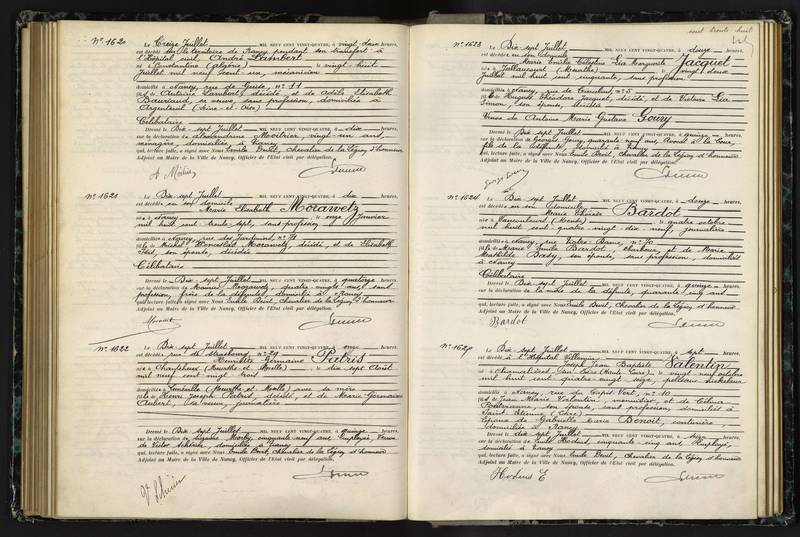 N° 1620
Le Treize Juillet MIL NEUF CENT VINGT-QUATRE, à vingt-deux heures,
est décédé sur le territoire de Nancy pendant son transfert à
l'Hôpital civil, André Lambert
né à Constantine (Algérie) le vingt-huit
Juillet mil neuf cent six, mécanicien
domicilié à Nancy, rue de Guise, n° 11
fils de Antoine Lambert, décédé, et de Adèle Elisabeth
sa veuve, sans profession, domiciliée à
Argenteuil (Seine-et-Oise)
Célibataire
Dressé le Dix-sept Juillet MIL NEUF CENT VINGT-QUATRE, à dix heures,
sur la déclaration de vingt-six ans
ménagère, domiciliée à Nancy
qui, lecture faite, a signé avec Nous Emile Chevalier de la Légion d'honneur
Adjoint au Maire de la Ville de Nancy, Officier de l'Etat civil par délégation.
N° 1621
Le Dix-sept Juillet MIL NEUF CENT VINGT-QUATRE, à dix heures,
est décédée en son domicile
Marie Elisabeth Morawetz
née à Nancy le onze Janvier
mil huit cent trente-sept, sans profession
domiciliée à Nancy, rue des Jardiniers, n°
fille de Michel Morawetz, décédé, et de Elisabeth
son épouse, décédée
Célibataire
Dressé le Dix-sept Juillet MIL NEUF CENT VINGT-QUATRE, à quatorze heures,
sur la déclaration de Morawetz, quatre-vingts ans, sans
profession, frère de la défunte, domicilié à Nancy
qui, lecture faite, a signé avec Nous Emile Chevalier de la Légion d'honneur
Adjoint au Maire de la Ville de Nancy, Officier de l'Etat civil par délégation.
N° 1622
Le Dix-sept Juillet MIL NEUF CENT VINGT-QUATRE, à onze heures,
est décédée rue de Strasbourg n° 29
Henriette Germaine Patris
née à Chanteheux (Meurthe-et-Moselle) le dix-sept Août
mil neuf cent vingt-trois
domiciliée à Lunéville (Meurthe-et-Moselle) avec sa mère
fille de Henri Joseph Patris, décédé, et de Marie Germaine
Aubert, sa veuve, journalière
Dressé le Dix-sept Juillet MIL NEUF CENT VINGT-QUATRE, à quinze heures,
sur la déclaration de cinquante-neuf ans, Employée, Veuve
de Victor domiciliée à Nancy
qui, lecture faite, a signé avec Nous Emile Chevalier de la Légion d'honneur
Adjoint au Maire de la Ville de Nancy, Officier de l'Etat civil par délégation.
cent trente-huit
N° 1623
Le Dix-sept Juillet MIL NEUF CENT VINGT-QUATRE, à douze heures,
est décédée en son domicile
Marie Emilie Lia Marguerite Jacquet
née à (Meurthe) le vingt-deux
Juillet mil huit cent cinquante, sans profession
domiciliée à Nancy, rue de n° 5
fille de Auguste Théodore Jacquet, décédé, et de Victoire Lia
Simon, son épouse, décédée
Veuve de Antoine Marie Gustave Goury
Dressé le Dix-sept Juillet MIL NEUF CENT VINGT-QUATRE, à quinze heures,
sur la déclaration de Georges Goury, quarante-neuf ans, Avocat à la Cour,
fils de la défunte, domicilié à Nancy
qui, lecture faite, a signé avec Nous Emile Chevalier de la Légion d'honneur
Adjoint au Maire de la Ville de Nancy, Officier de l'Etat civil par délégation.
N° 1624
Le Dix-sept Juillet MIL NEUF CENT VINGT-QUATRE, à douze heures,
est décédée en son domicile
Marie Thérèse Bardot
née à Vaucouleurs (Meuse) le quatre octobre
mil huit cent quatre-vingt-dix-neuf, journalière
domiciliée à Nancy, rue n° 70
fille de Marie Emile Bardot, charbonnier, et de Marie
Mathilde son épouse, sans profession, domiciliés
à Nancy
Célibataire
Dressé le Dix-sept Juillet MIL NEUF CENT VINGT-QUATRE, à quinze heures,
sur la déclaration de la mère de la défunte, quarante-cinq ans
qui, lecture faite, a signé avec Nous Emile Chevalier de la Légion d'honneur
Adjoint au Maire de la Ville de Nancy, Officier de l'Etat civil par délégation.
Bardot
N° 1625
Le Dix-sept Juillet MIL NEUF CENT VINGT-QUATRE, à sept heures,
est décédé à l'Hôpital Villemin
Joseph Jean Baptiste Valentin
né à (Haute-Loire) le vingt-neuf octobre
mil huit cent quatre-vingt-seize,
domicilié à Nancy, rue du Tapis Vert, n° 10
fils de Jean Marie Valentin, menuisier, et de
son épouse, sans profession, domiciliés à
Saint-Etienne (Loire)
Epoux de Gabrielle Maria Benoit, couturière
domiciliée à Nancy
Dressé le dix-sept Juillet MIL NEUF CENT VINGT-QUATRE, à seize heures,
sur la déclaration de Emile cinquante-cinq ans, Employé
domicilié à Nancy
qui, lecture faite, a signé avec Nous Emile Chevalier de la Légion d'honneur
Adjoint au Maire de la Ville de Nancy, Officier de l'Etat civil par délégation.